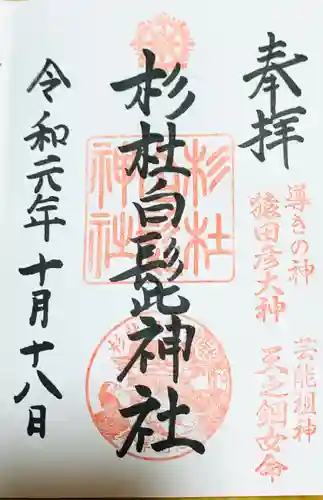 奉拝
導きの神
猿田彦大神
芸能祖神
天之鈿女命
杉杜白髭神社
杉杜
神社
令和元年十月十八日